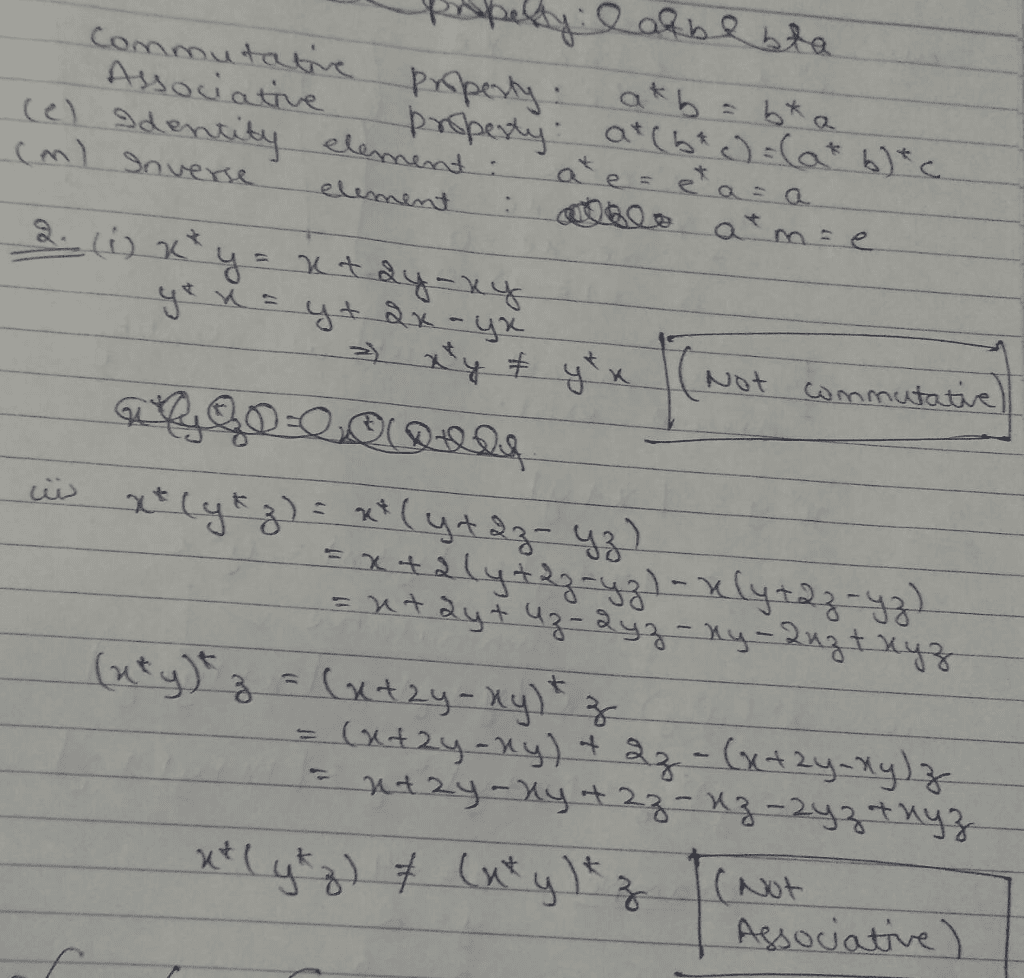 property: a*b & b*a
Commutative property: a*b = b*a
Associative property: a*(b*c)=(a*b)*c
(e) Identity element: a*e = e*a = a
(m) Inverse element : a*m = e
2. (i) x*y = x + 2y - xy
y*x = y + 2x - yx
⇒ x*y ≠ y*x (Not commutative)
(ii) x*(y*z) = x*(y+2z-yz)
= x+2(y+2z-yz)-x(y+2z-yz)
= x+2y+4z-2yz-xy-2xz+xyz
(x*y)*z = (x+2y-xy)*z
= (x+2y-xy) + 2z-(x+2y-xy)z
= x+2y-xy+2z-xz-2yz+xyz
x*(y*z) ≠ (x*y)*z (Not
Associative)